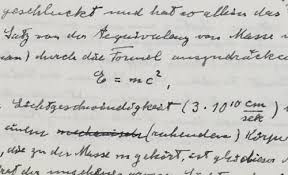 geschluckt und hat so allein das
Satz von der Aequivalenz von Masse
durch die Formel auszudrücken
E = mc²,
Lichtgeschwindigkeit (3 · 10¹⁰ cm/sek)
einem mechanisch (ruhenden) Körper
die zu der Masse m gehört, ist gleich